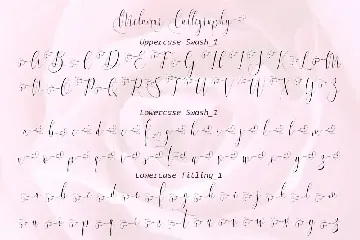 Calligraphy
Uppercase Swash_1
A B C D E F G H I J K L M
N O P Q R S T U V W X Y Z
Lowercase Swash_1
a b c d e f g h i j k l m
n o p q r s t u v w x y z
Lowercase Titling_1
a b c d e f g h i j k l m
n o p q r s t u v w x y z